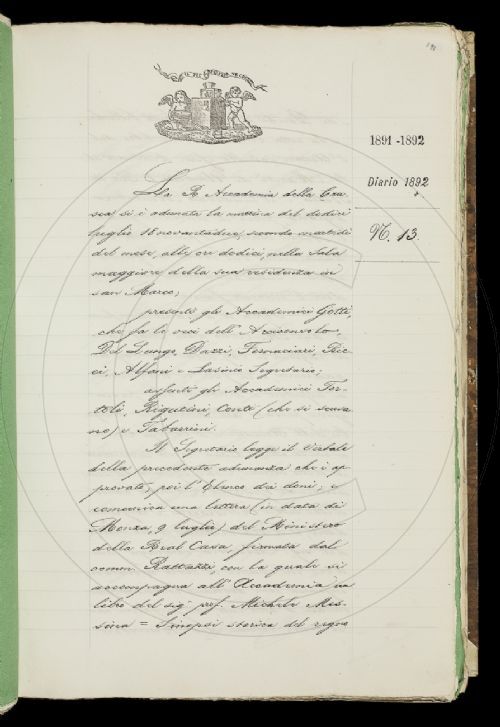 1891-1892
Diario 1892
N. 13.
La R. Accademia della Cru-
sca si è adunata la mattina del dodici
luglio 18novantadue, secondo martedì
del mese, alle ore dodici, nella Sala
maggiore della sua residenza in
San Marco;
presenti gli Accademici Gotti,
che fa le veci dell'Arciconsolo,
Del Lungo, Dazzi, Fornaciari, Ric-
ci, Alfani e Lasinio Segretario;
assenti gli Accademici Tor-
toli, Rigutini, Conti (che si scusa-
no) e Tabarrini.
Il Segretario legge il Verbale
della precedente adunanza che è ap-
provato; poi l'Elenco dei doni; e
comunica una lettera (in data di
Monza, 9 luglio) del Ministero
della Real Casa, firmata dal
comm. Rattazzi, con la quale si
accompagna all'Accademia un
libro del sig. prof. Michele Mes-
sina = Sinopsi storica del regno